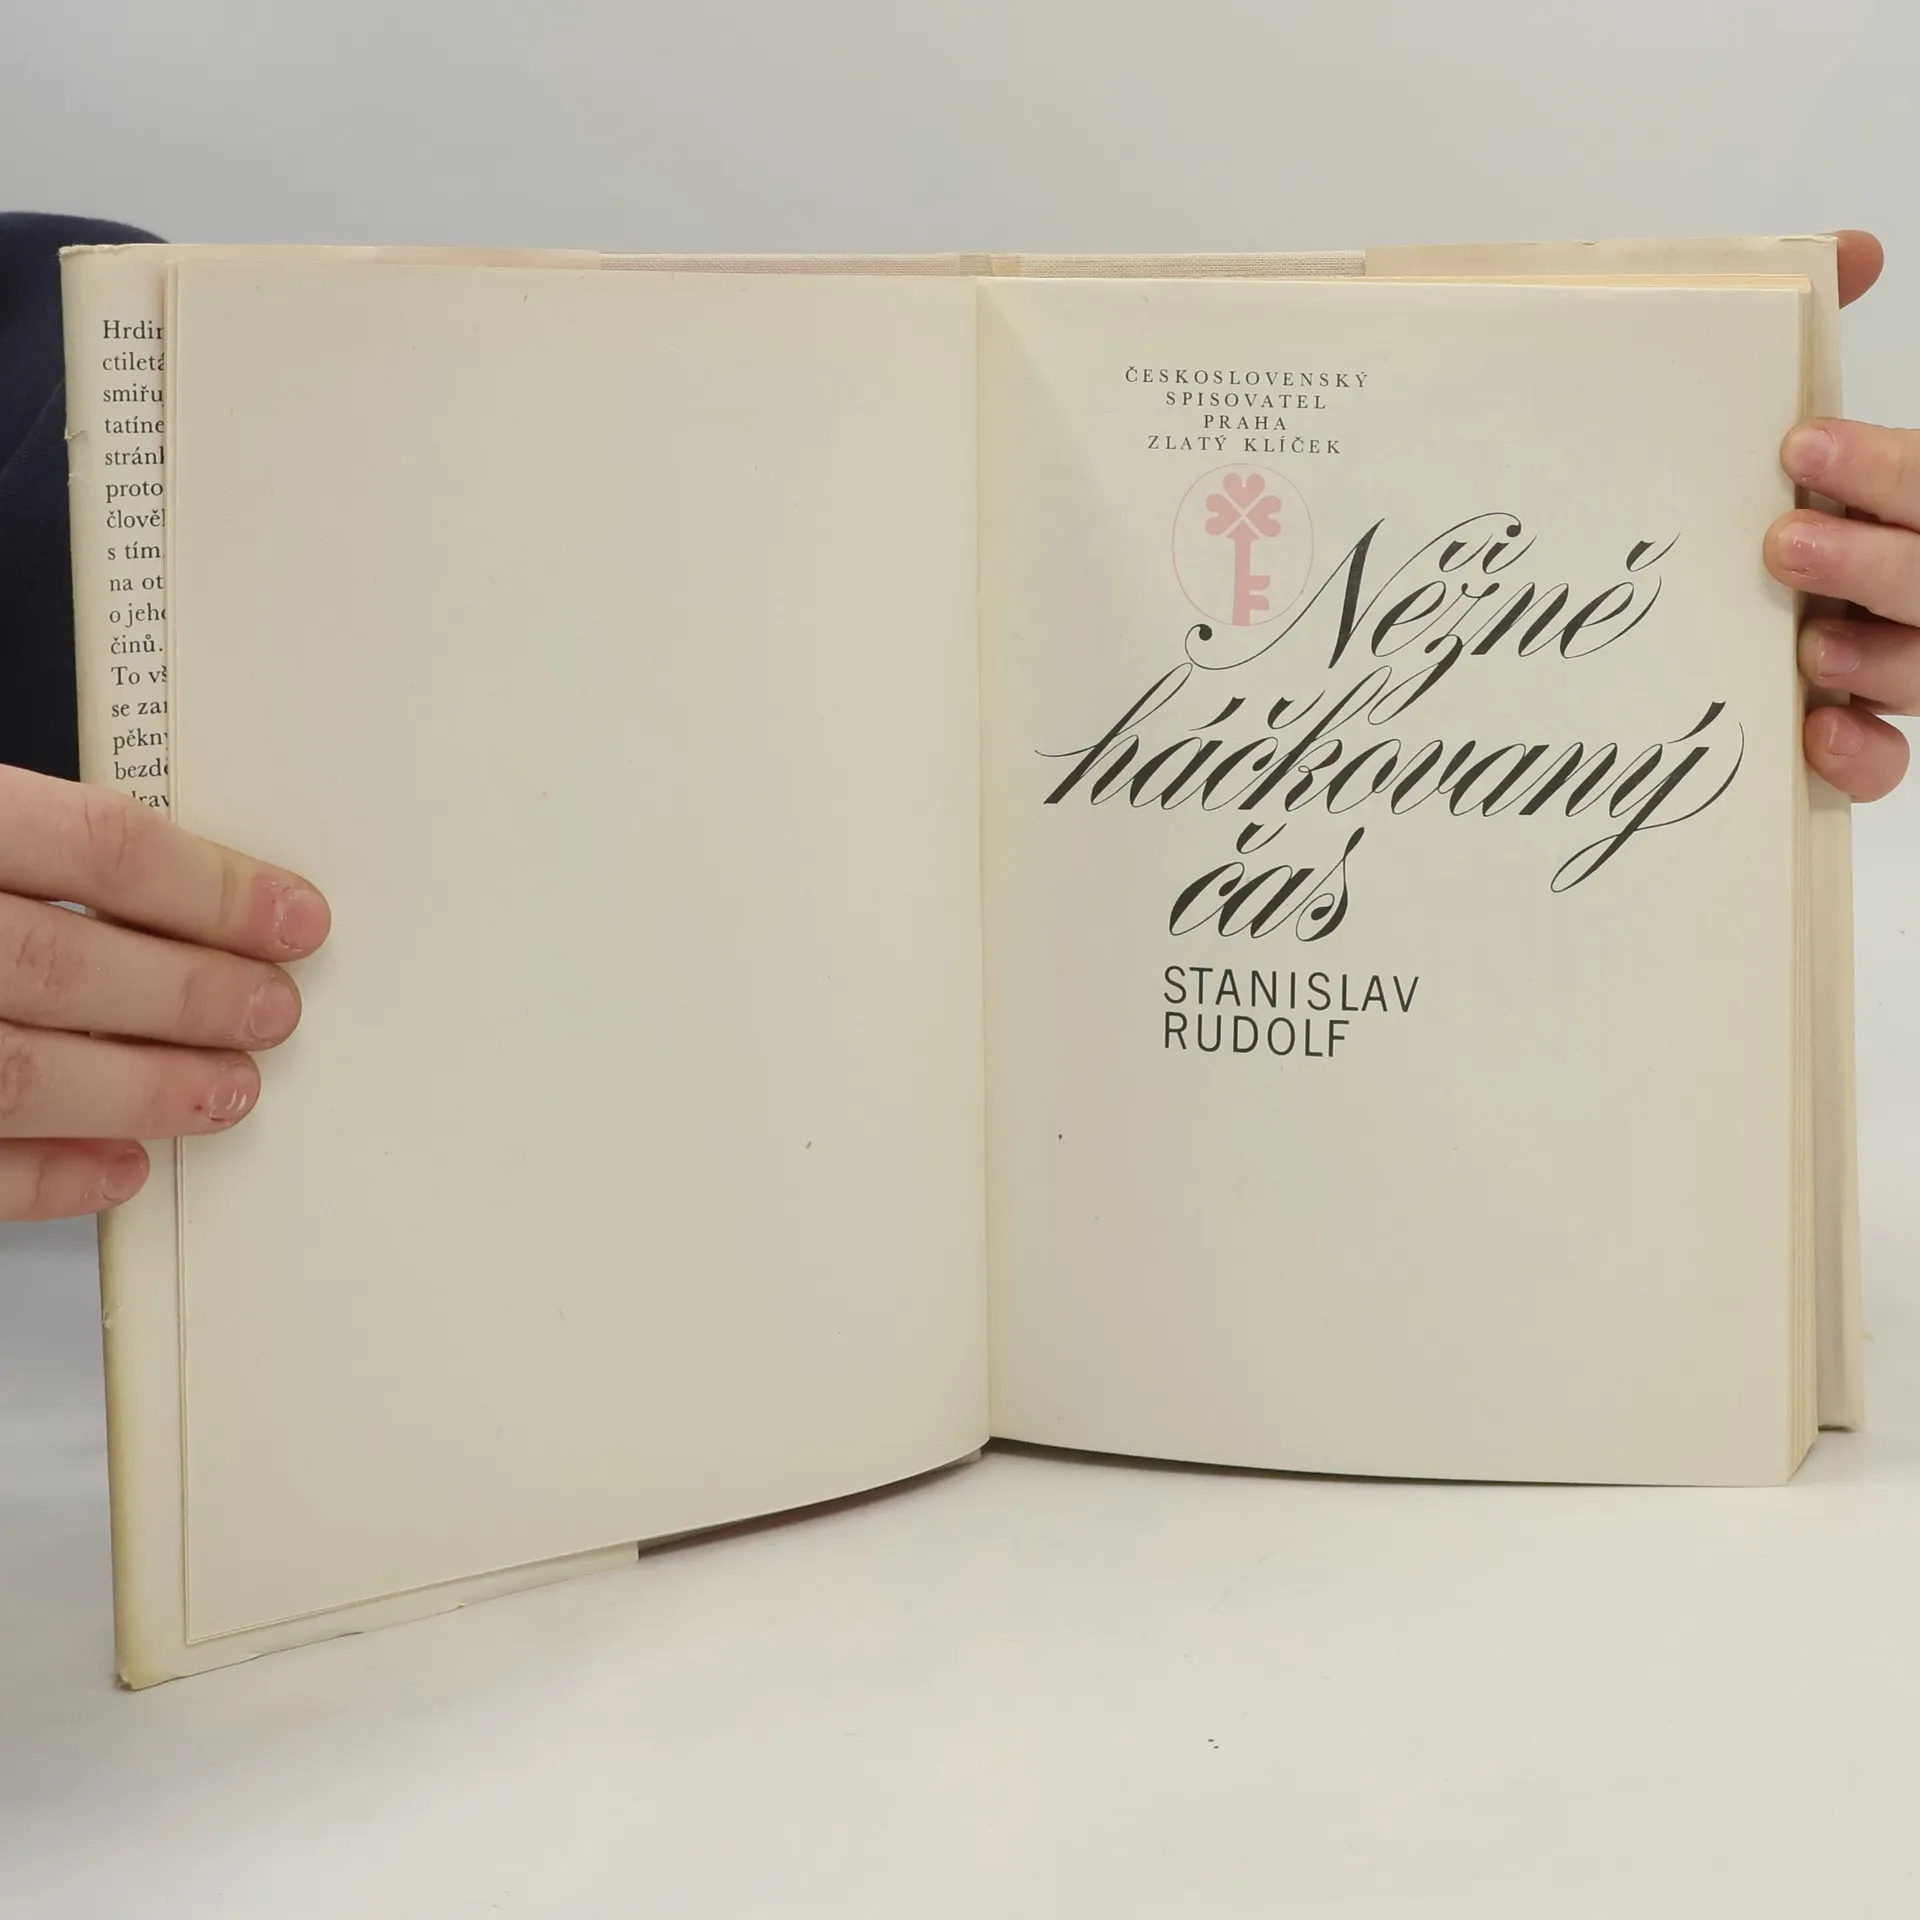 Hrdin
ctiletá
smiřu
tatíne
stránk
proto
člověk
s tím
na ot
o jeho
činů.
To vš
se zar
pěkný
bezdě
ČESKOSLOVENSKÝ
SPISOVATEL
PRAHA
ZLATÝ KLÍČEK
Něžně
háčkovaný
čas
STANISLAV
RUDOLF